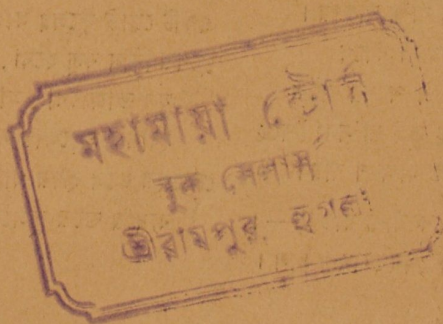 মহামায়া ষ্টোর্স
বুক সেলার্স
শ্রীরামপুর হুগলী